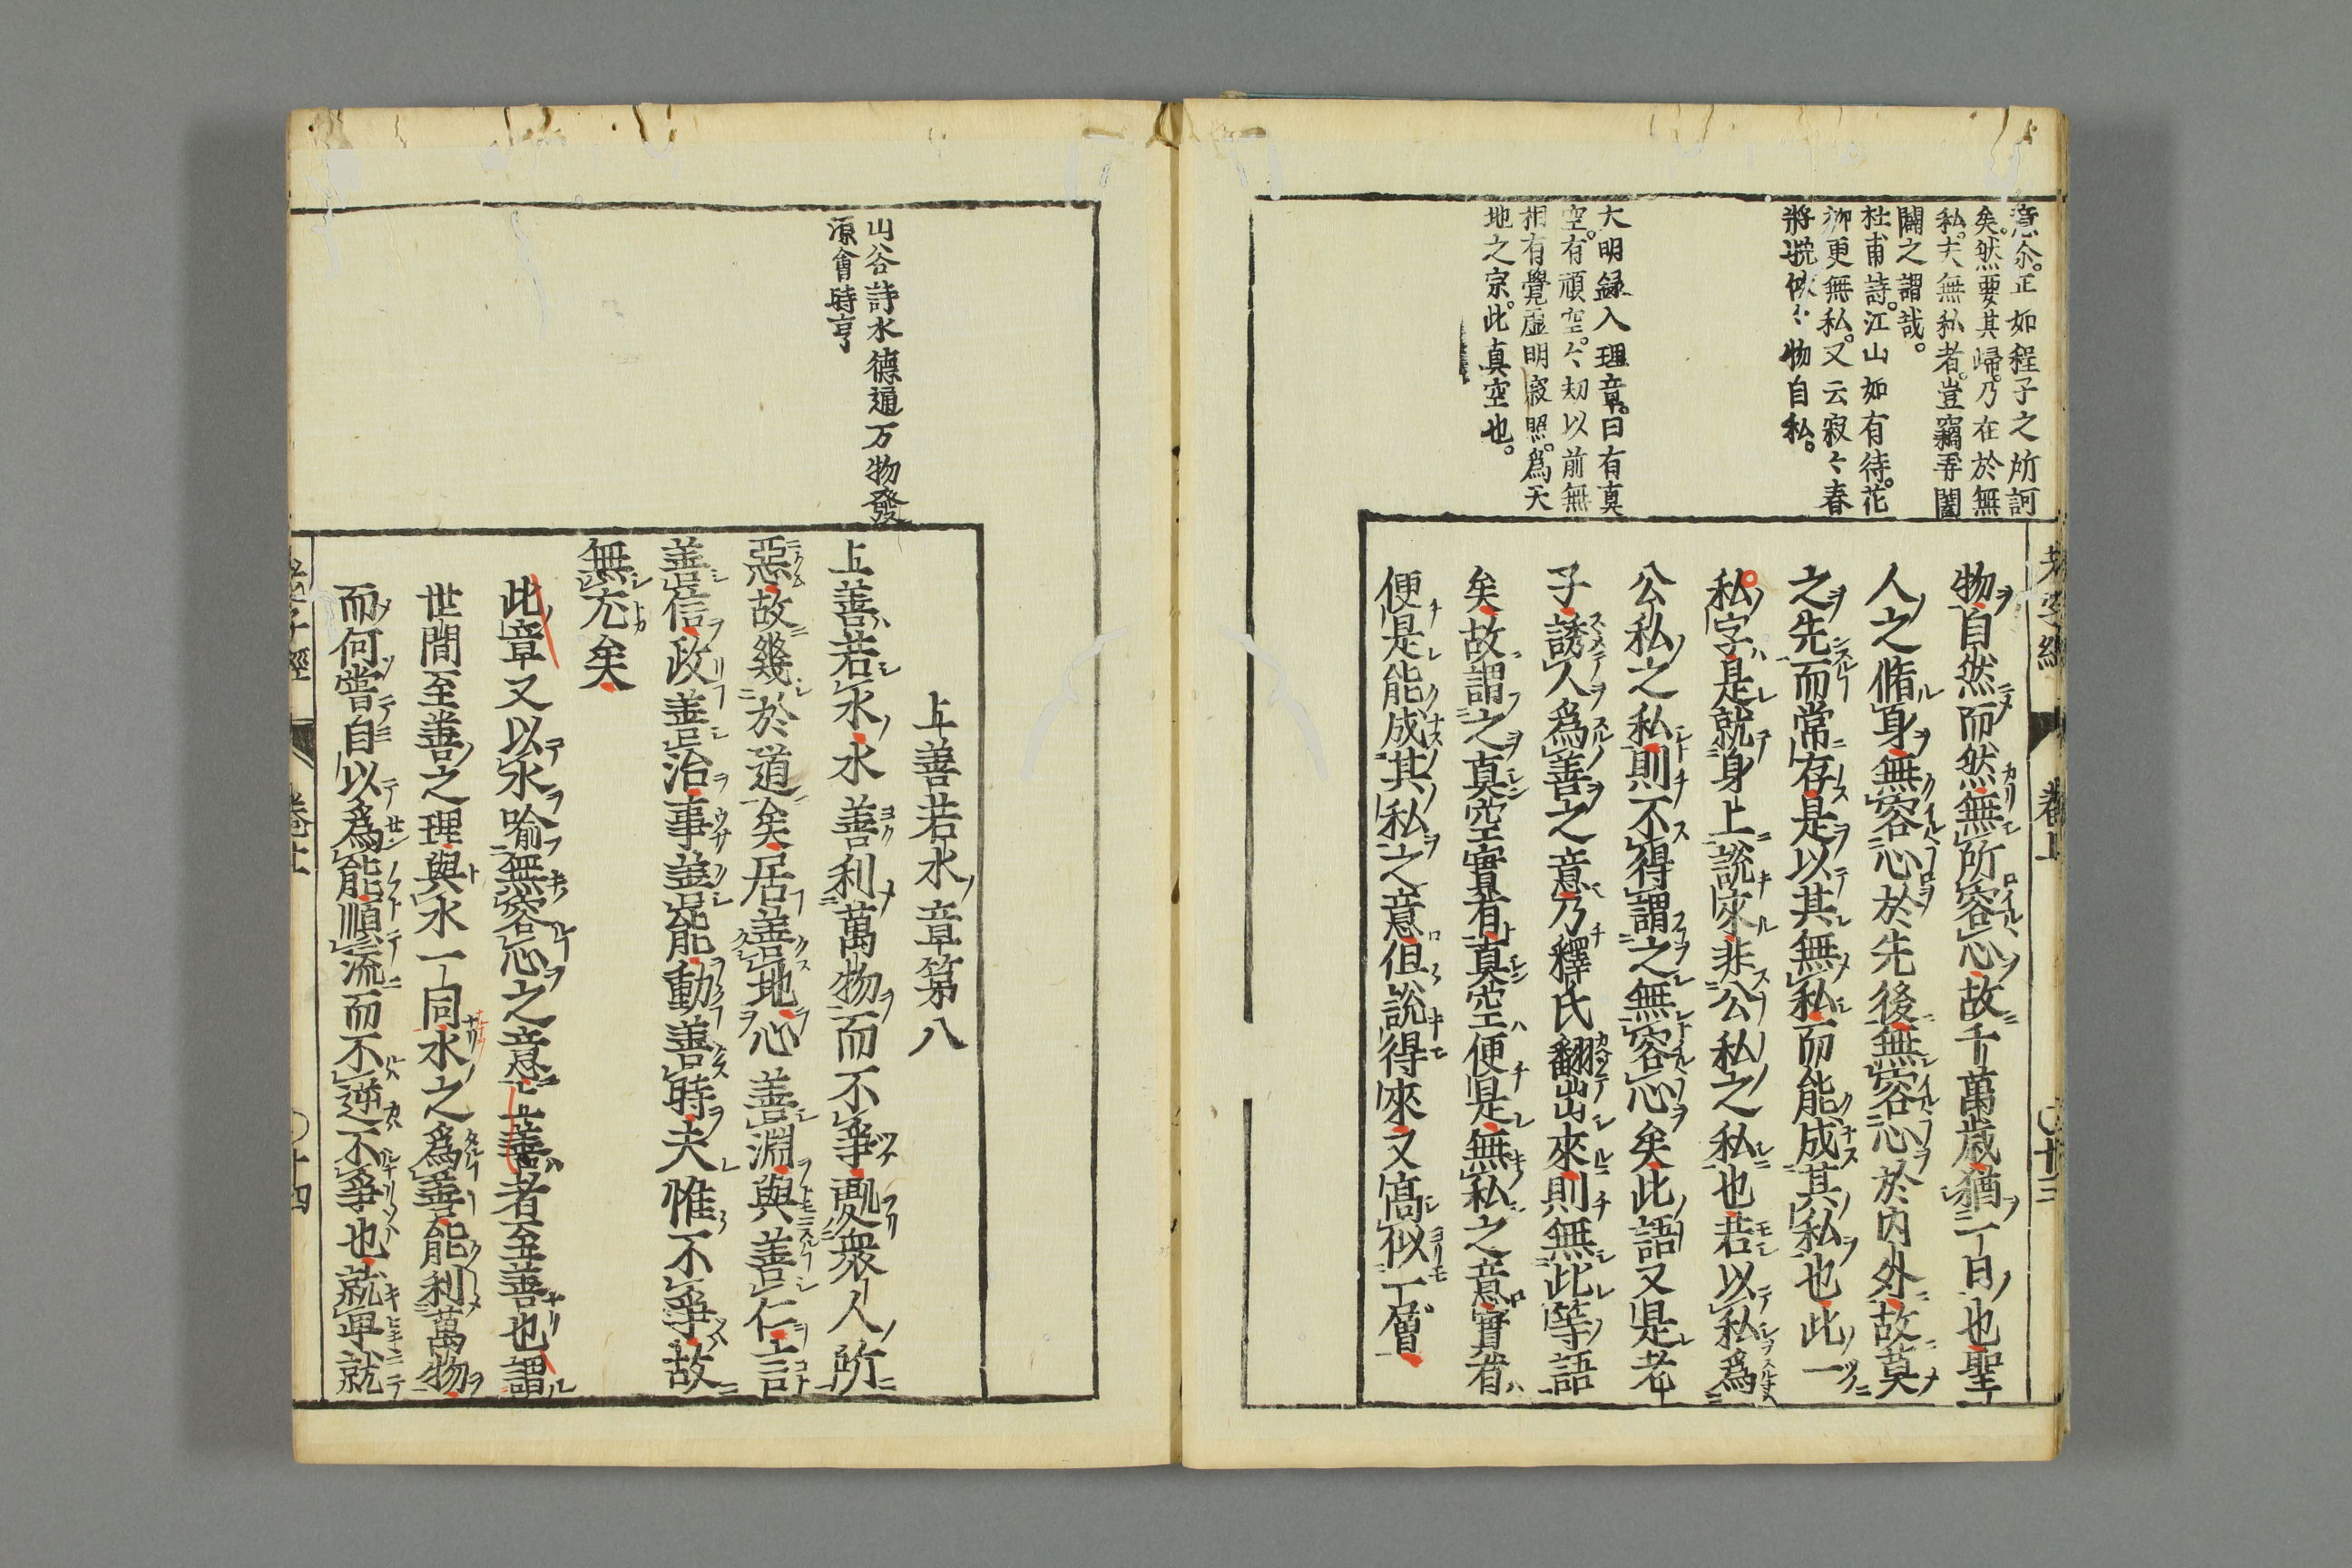 意尒。正如程子之所訶
矣。然要其歸。乃在於無
私。夫無私者。豈竊弄闔
闢之謂哉。
杜甫詩。江山如有待。花
柳更無私。又云寂〻春
將晩。欣〻物自私。
大明録入理章。曰有真
空。有頑空。〻劫以前無
相有覺。虚明寂照。爲天
地之宗。此真空也。
老子經 卷上 〇十三
物自然而然無所容心故千萬歳猶一日也聖
人之脩身無容心於先後無容心於内外故莫
之先而常存是以其無私而能成其私也此一
私字是就身上說來非公私之私也若以私爲
公私之私則不得謂之無容心矣此語又是老
子誘人爲善之意乃釋氏翻出來則無此等語
矣故謂之真空實有真空便是無私之意實有
便是能成其私之意但說得來又高似一層
山谷詩水德通万物發
源會時亨
上善若水章第八
上善若水水善利萬物而不爭處衆人所
惡故幾於道矣居善地心善淵與善仁言
善信政善治事善能動善時夫惟不爭故
無尤矣
此章又以水喻無容心之意上善者至善也謂
世間至善之理與水一同水之爲善能利萬物
而何嘗自以爲能順流而不逆不爭也就卑就
老子經 卷上 〇十四